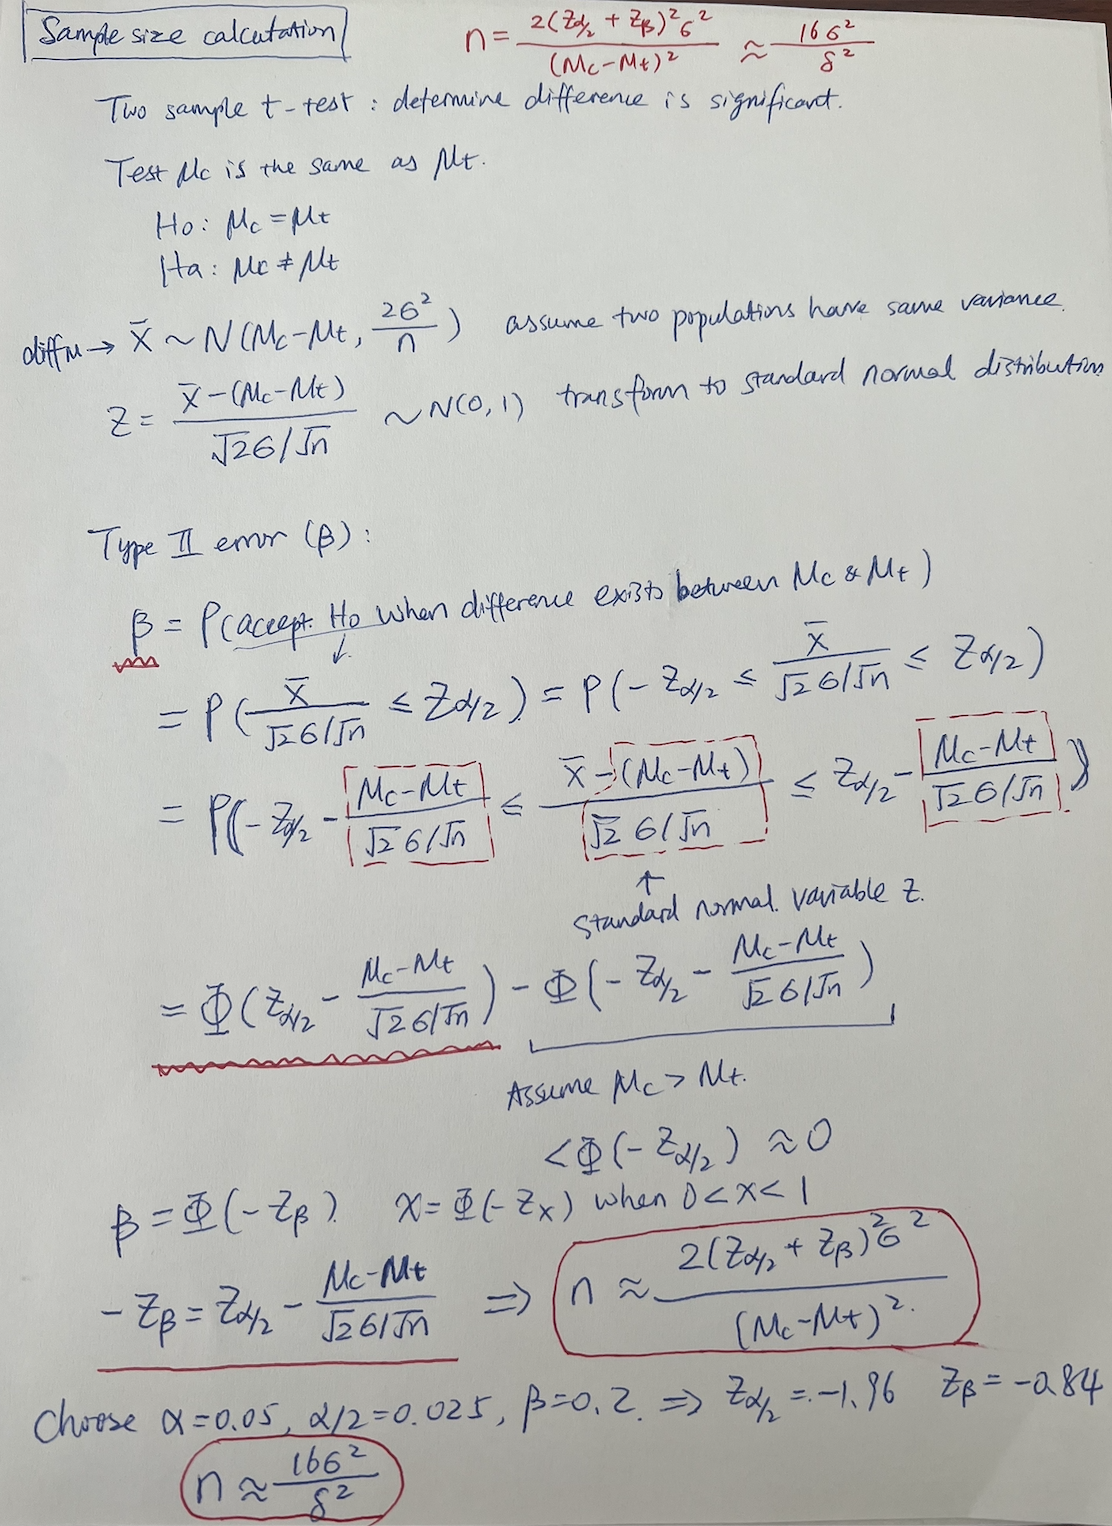 Sample size calculation
n = 2(Zα/2 + Zβ)²σ² / (μc-μt)² ≈ 16σ² / δ²
Two sample t-test : determine difference is significant.
Test μc is the same as μt.
Ho: μc = μt
Ha: μc ≠ μt
diff μ → X̄ ~ N(μc-μt, 2σ²/n) assume two populations have same variance.
Z = X̄-(μc-μt) / √2σ/√n ~N(0,1) transform to standard normal distribution
Type II error (β):
β = P(accept Ho when difference exists between μc & μt)
↓
= P( X̄ / √2σ/√n ≤ Zα/2 ) = P(-Zα/2 ≤ X̄ / √2σ/√n ≤ Zα/2)
= P(-Zα/2 - μc-μt / √2σ/√n ≤ X̄-(μc-μt) / √2σ/√n ≤ Zα/2 - μc-μt / √2σ/√n)
↑
standard normal. variable Z.
= Φ(Zα/2 - μc-μt / √2σ/√n) - Φ(-Zα/2 - μc-μt / √2σ/√n)
Assume μc > μt.
< Φ(-Zα/2) ≈ 0
β = Φ(-Zβ). x = Φ(-Zx) when 0<x<1
-Zβ = Zα/2 - μc-μt / √2σ/√n ⇒ n ≈ 2(Zα/2 + Zβ)²σ² / (μc-μt)².
Choose α=0.05, α/2=0.025, β=0.2. ⇒ Zα/2 = -1.96 Zβ = -0.84
n ≈ 16σ² / δ²